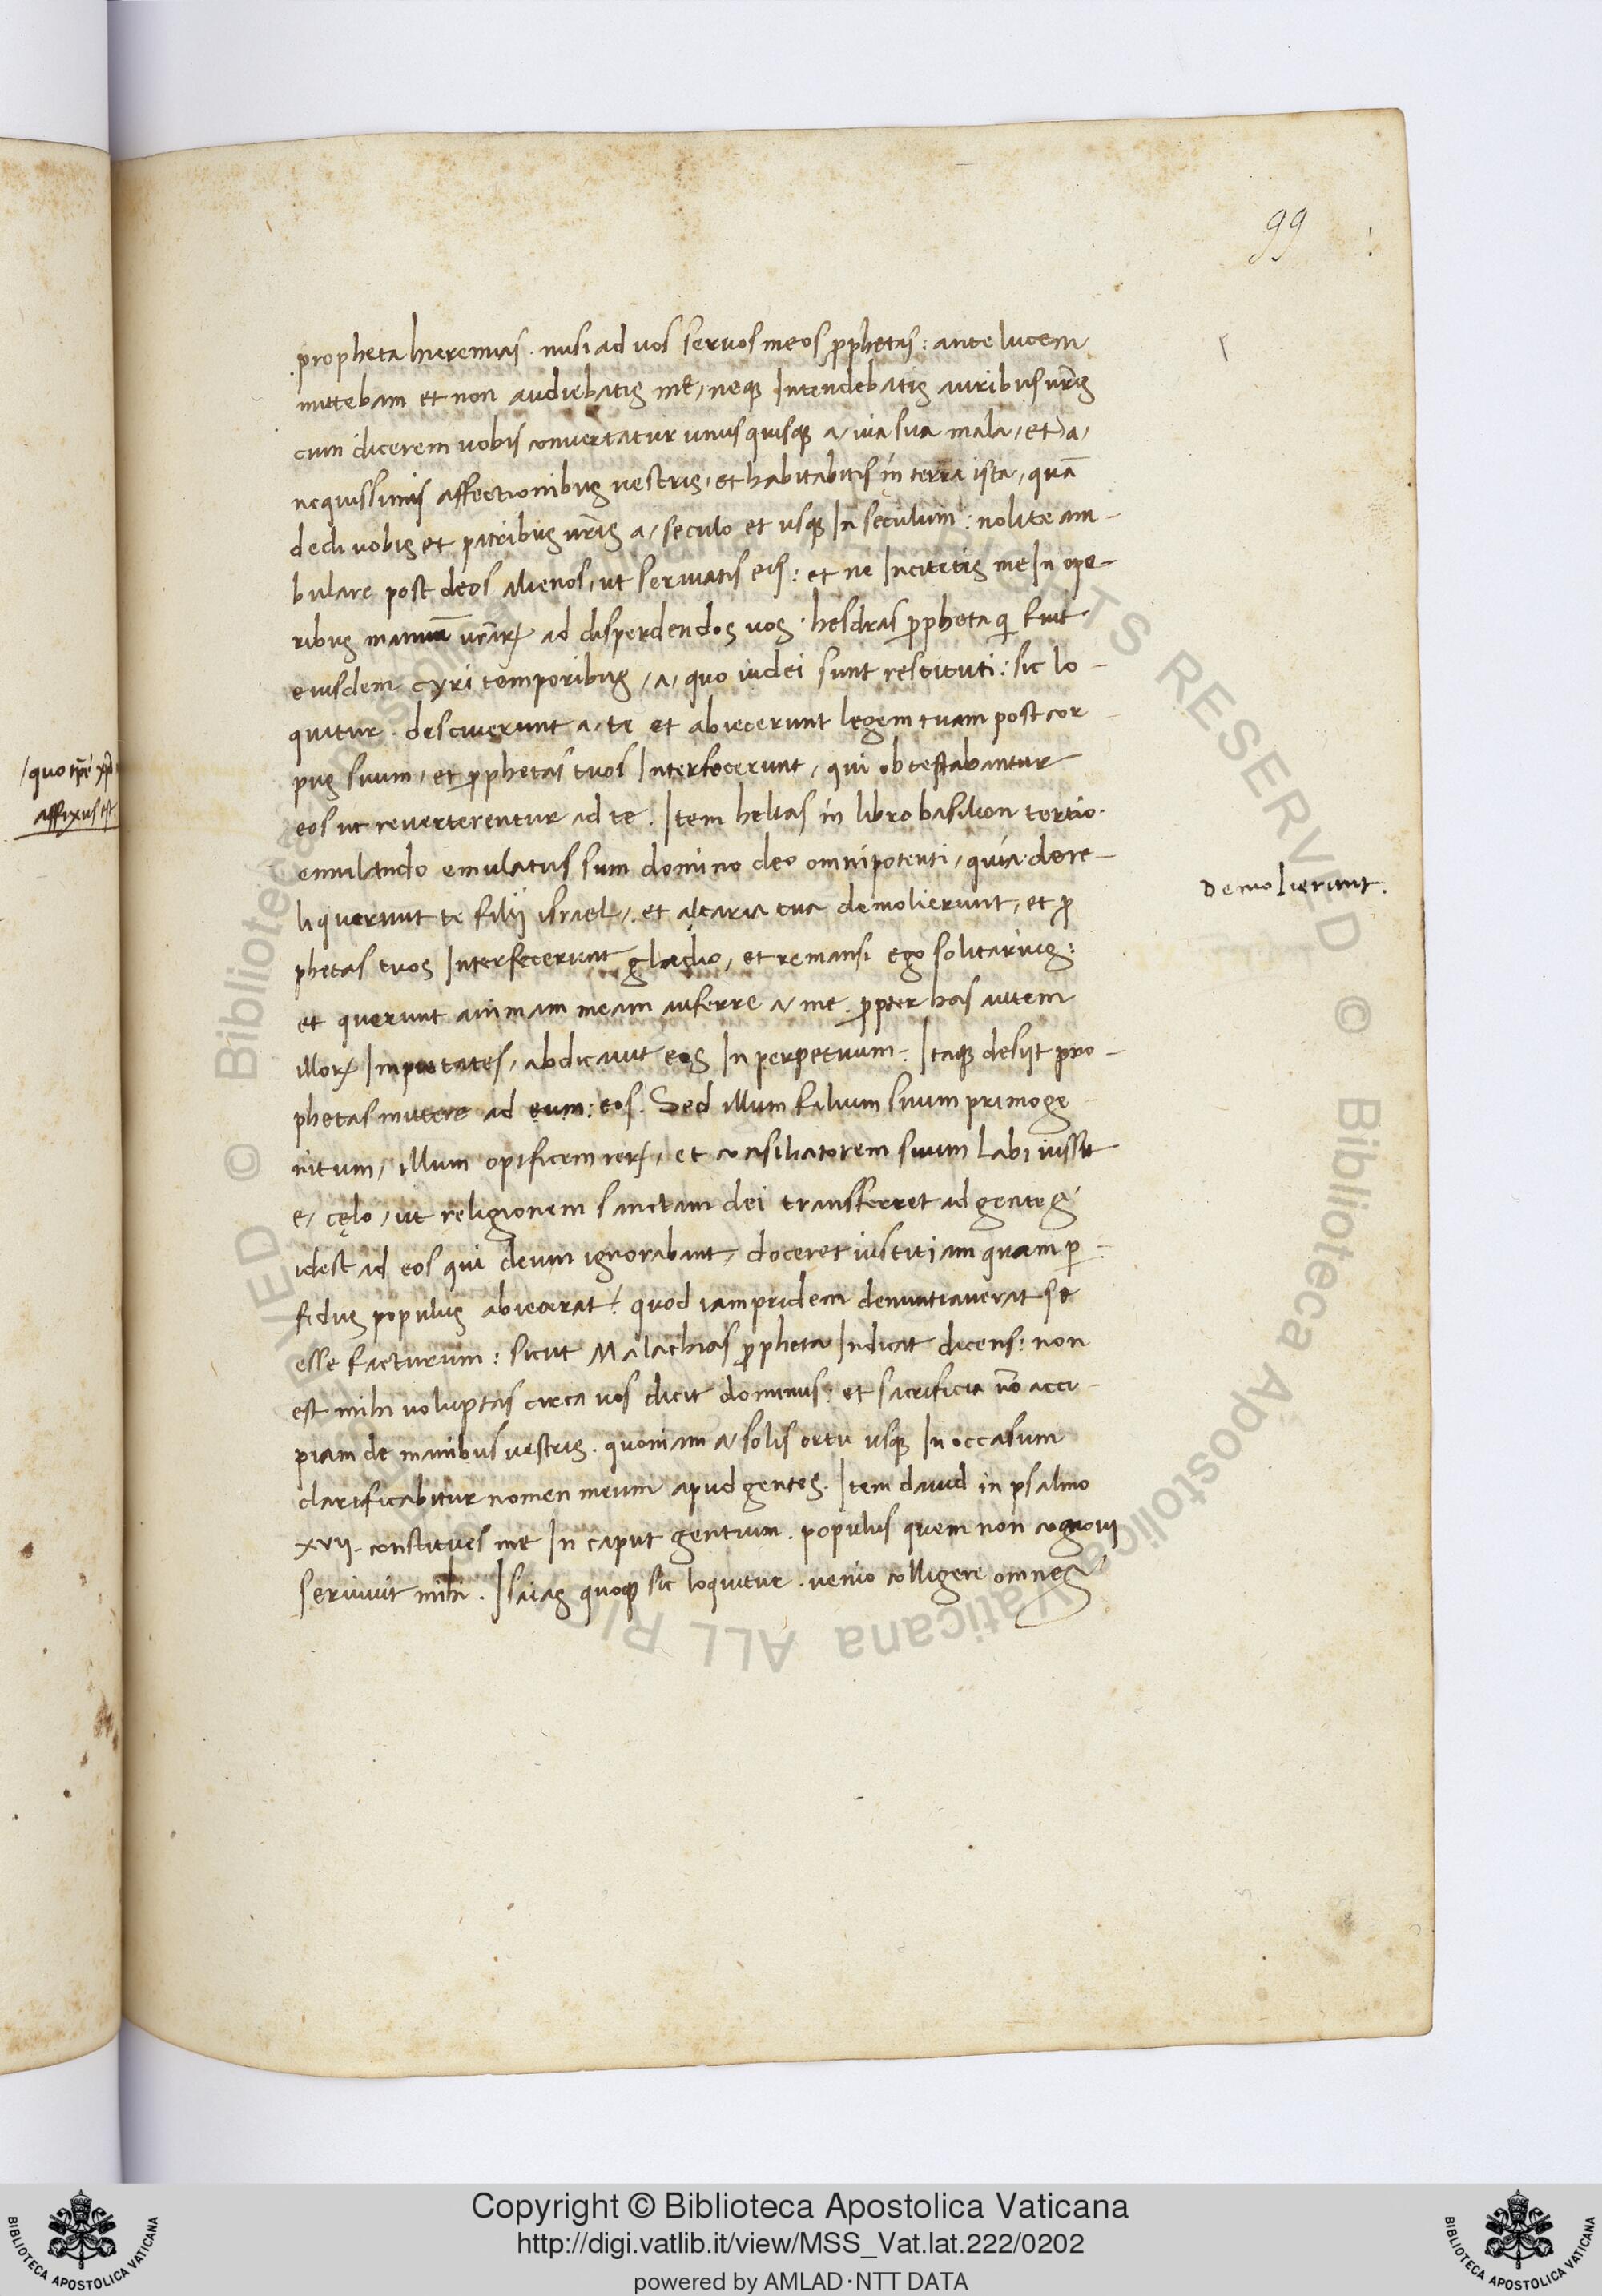 99
propheta hieremias. misi ad vos servos meos ꝓphetas: ante lucem
mittebam et non audiebatis me, neqꝫ Intendebatis auribus vr̄is
cum dicerem vobis convertatur unusquisqꝫ a via sua mala, et a
nequissimis affectionibus vestris, et habitabitis in terra ista, quā
dedi vobis et patribus vr̄is a seculo et usqꝫ In seculum: nolite am-
bulare post deos alienos, ut serviatis eis: et ne Incitetis me In ope-
ribus manuū vr̄arꝝ ad disperdendos vos. hesdras ꝓpheta qi fuit
eiusdem cyri temporibus, a quo iudei sunt restituti: sic lo-
quitur. desciverunt a te et abiecerunt legem tuam post cor
pus suum, et ꝓphetas tuos Interfecerunt, qui obtestabantur
eos ut reverterentur ad te. Item helias in libro basilion tertio.
emulando emulatus sum domino deo omnipotenti, quia dere-
liquerunt te filij israel, et altaria tua demolierunt, et ꝓ
phetas tuos Interfecerunt gladio, et remansi ego solitarius:
et querunt animam meam auferre a me. ꝓpter has autem
illorꝝ Impietates, abdicavit eos In perpetuum. Itaqꝫ desijt pro-
phetas mittere ad eum: eos. Sed illum filium suum primoge-
nitum, illum opificem rerꝝ, et consiliatorem suum labi iussit
e cęlo, ut religionem sanctam dei transferret ad gentes
idest ad eos qui deum ignorabant, doceret iustitiam quam ꝑ-
fidus populus abiecerat. quod iampridem denuntiaverat se
esse facturum: sicut Malachias ꝓpheta Indicat dicens: non
est mihi voluptas circa vos dicit dominus: et sacrificia nō acci-
piam de manibus vestris. quoniam a solis ortu usqꝫ In occasum
clarificabitur nomen meum apud gentes. Item david in psalmo
xvij. constitues me In caput gentium. populus quem non cognovi
servivit mihi. Isaias quoqꝫ sic loquitur. venio colligere omnes
Demolierunt.
quo tp̄e xp̄s
affixus est.
© Biblioteca Apostolica Vaticana ALL RIGHTS RESERVED
Copyright © Biblioteca Apostolica Vaticana
http://digi.vatlib.it/view/MSS_Vat.lat.222/0202
powered by AMLAD·NTT DATA
BIBLIOTECA APOSTOLICA VATICANA
BIBLIOTECA APOSTOLICA VATICANA